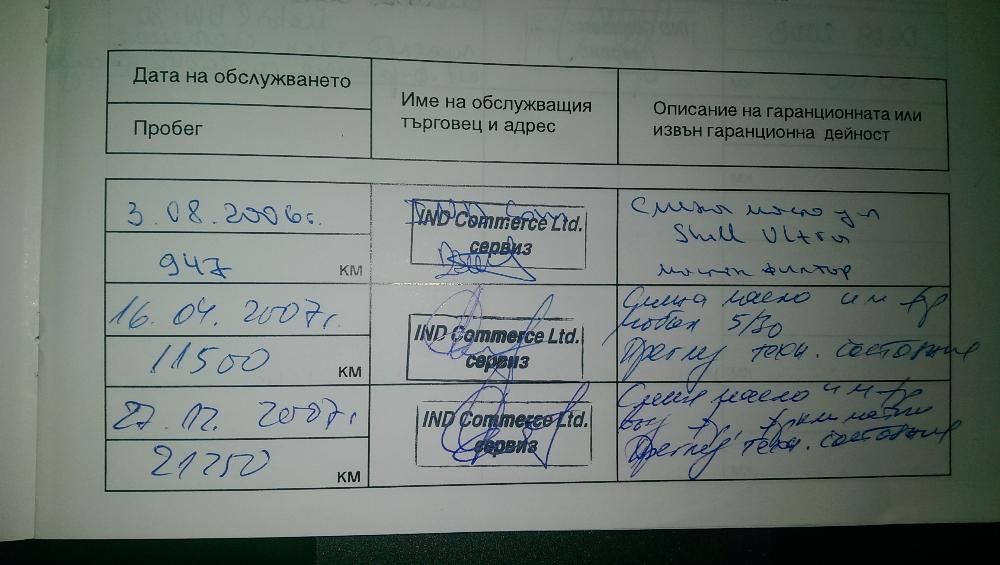 Дата на обслужването
Пробег
Име на обслужващия
търговец и адрес
Описание на гаранционната или
извън гаранционна дейност
3.08.2006г.
947 км
IND Commerce Ltd.
сервиз
Смяна масло
Shell Ultra
маслен филтър
16.04.2007г.
11500 км
IND Commerce Ltd.
сервиз
Смяна масло и м. ф-р
5/30
Преглед техн. състояние
27.12.2007г.
21250 км
IND Commerce Ltd.
сервиз
Смяна масло и м. ф-р
Преглед техн. състояние